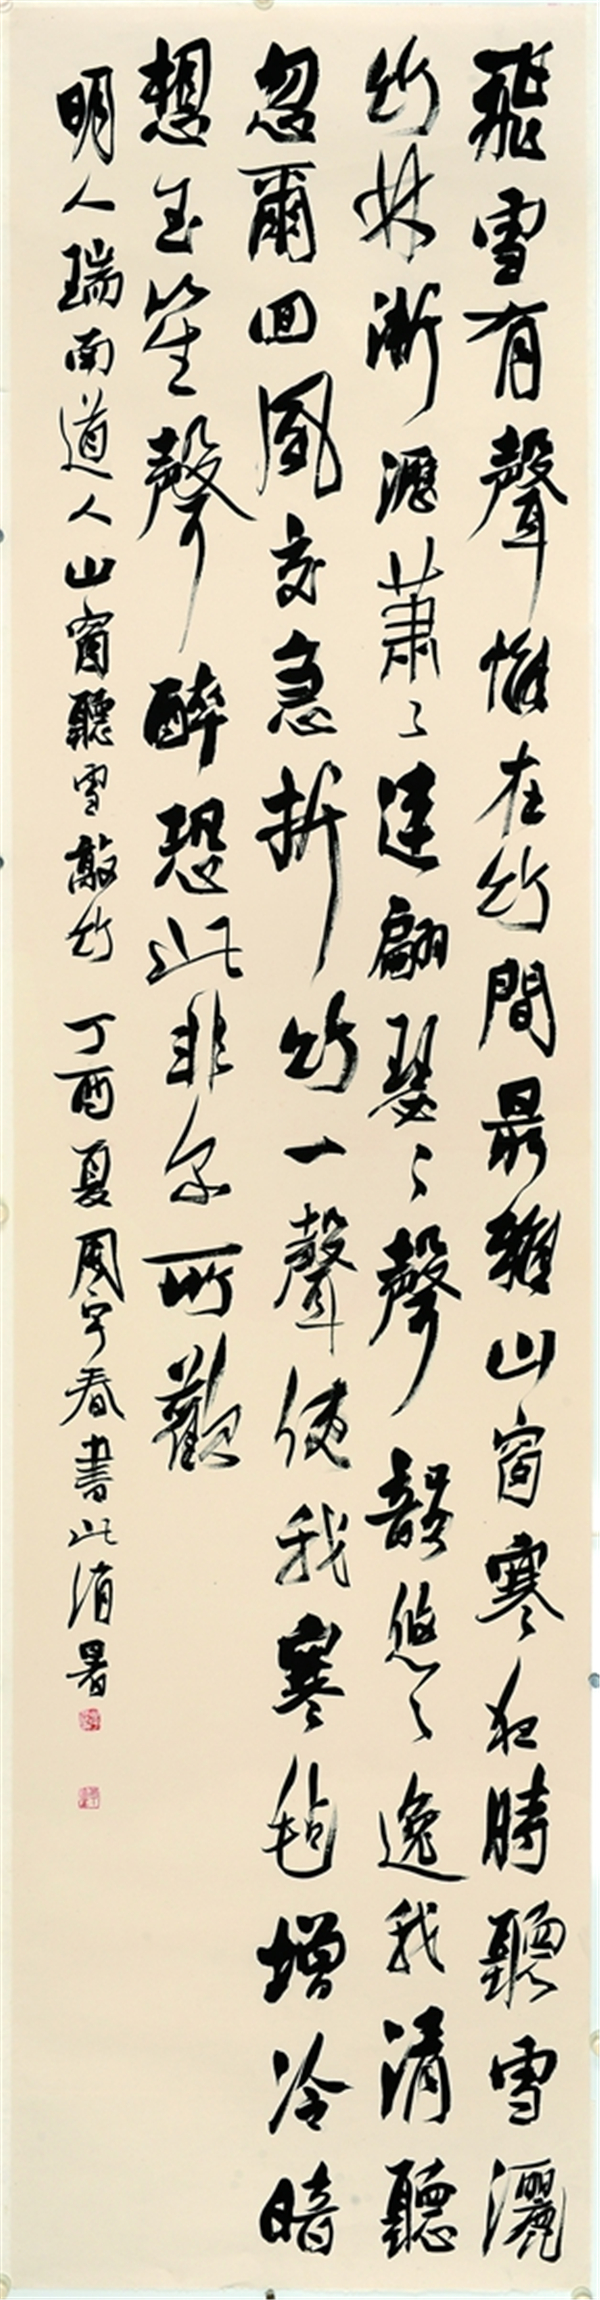 飛雪有聲惟在竹間最雅山窗寒夜時聽雪灑
竹林淅瀝蕭〻連翩瑟〻聲韻悠〻逸我清聽
忽爾回風交急折竹一聲使我寒毡增冷暗
想玉笙聲醉恐此非尔所歡
明人瑞南道人山窗聽雪敲竹 丁酉夏周春書此消暑